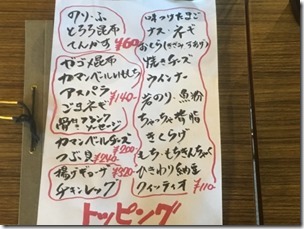 のり・ふ
とろろ昆布
てんかす ¥60-
カマンベール
アスパラ
ごまネギ
¥140-
骨付フランクソーセージ
カマンベールチーズ
¥200-
つぶ貝 ¥240-
揚げギョーザ ¥320-
チキンレッグ
味つけたまご
ナス・ネギ
おくら(きざみ
焼きチーズ
ウインナー
岩のり・魚粉
ちゃっちゃ背脂
きくらげ
もち・もちきんちゃく
ひきわり納豆
クィッティオ ¥110-
トッピング